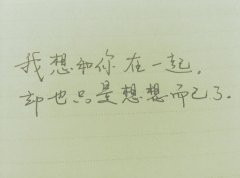 我想和你在一起,
却也只是想想而已了.